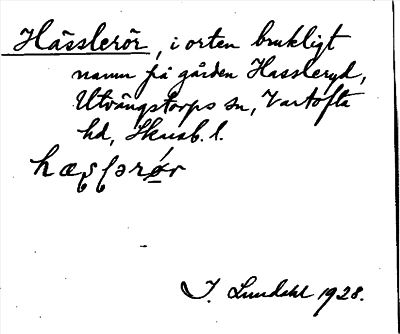 Hässlerör, i orten brukligt
namn på gården Hassleryd,
Utvängstorps sn, Vartofta
hd, Skarab. l.
I. Lundahl 1928.